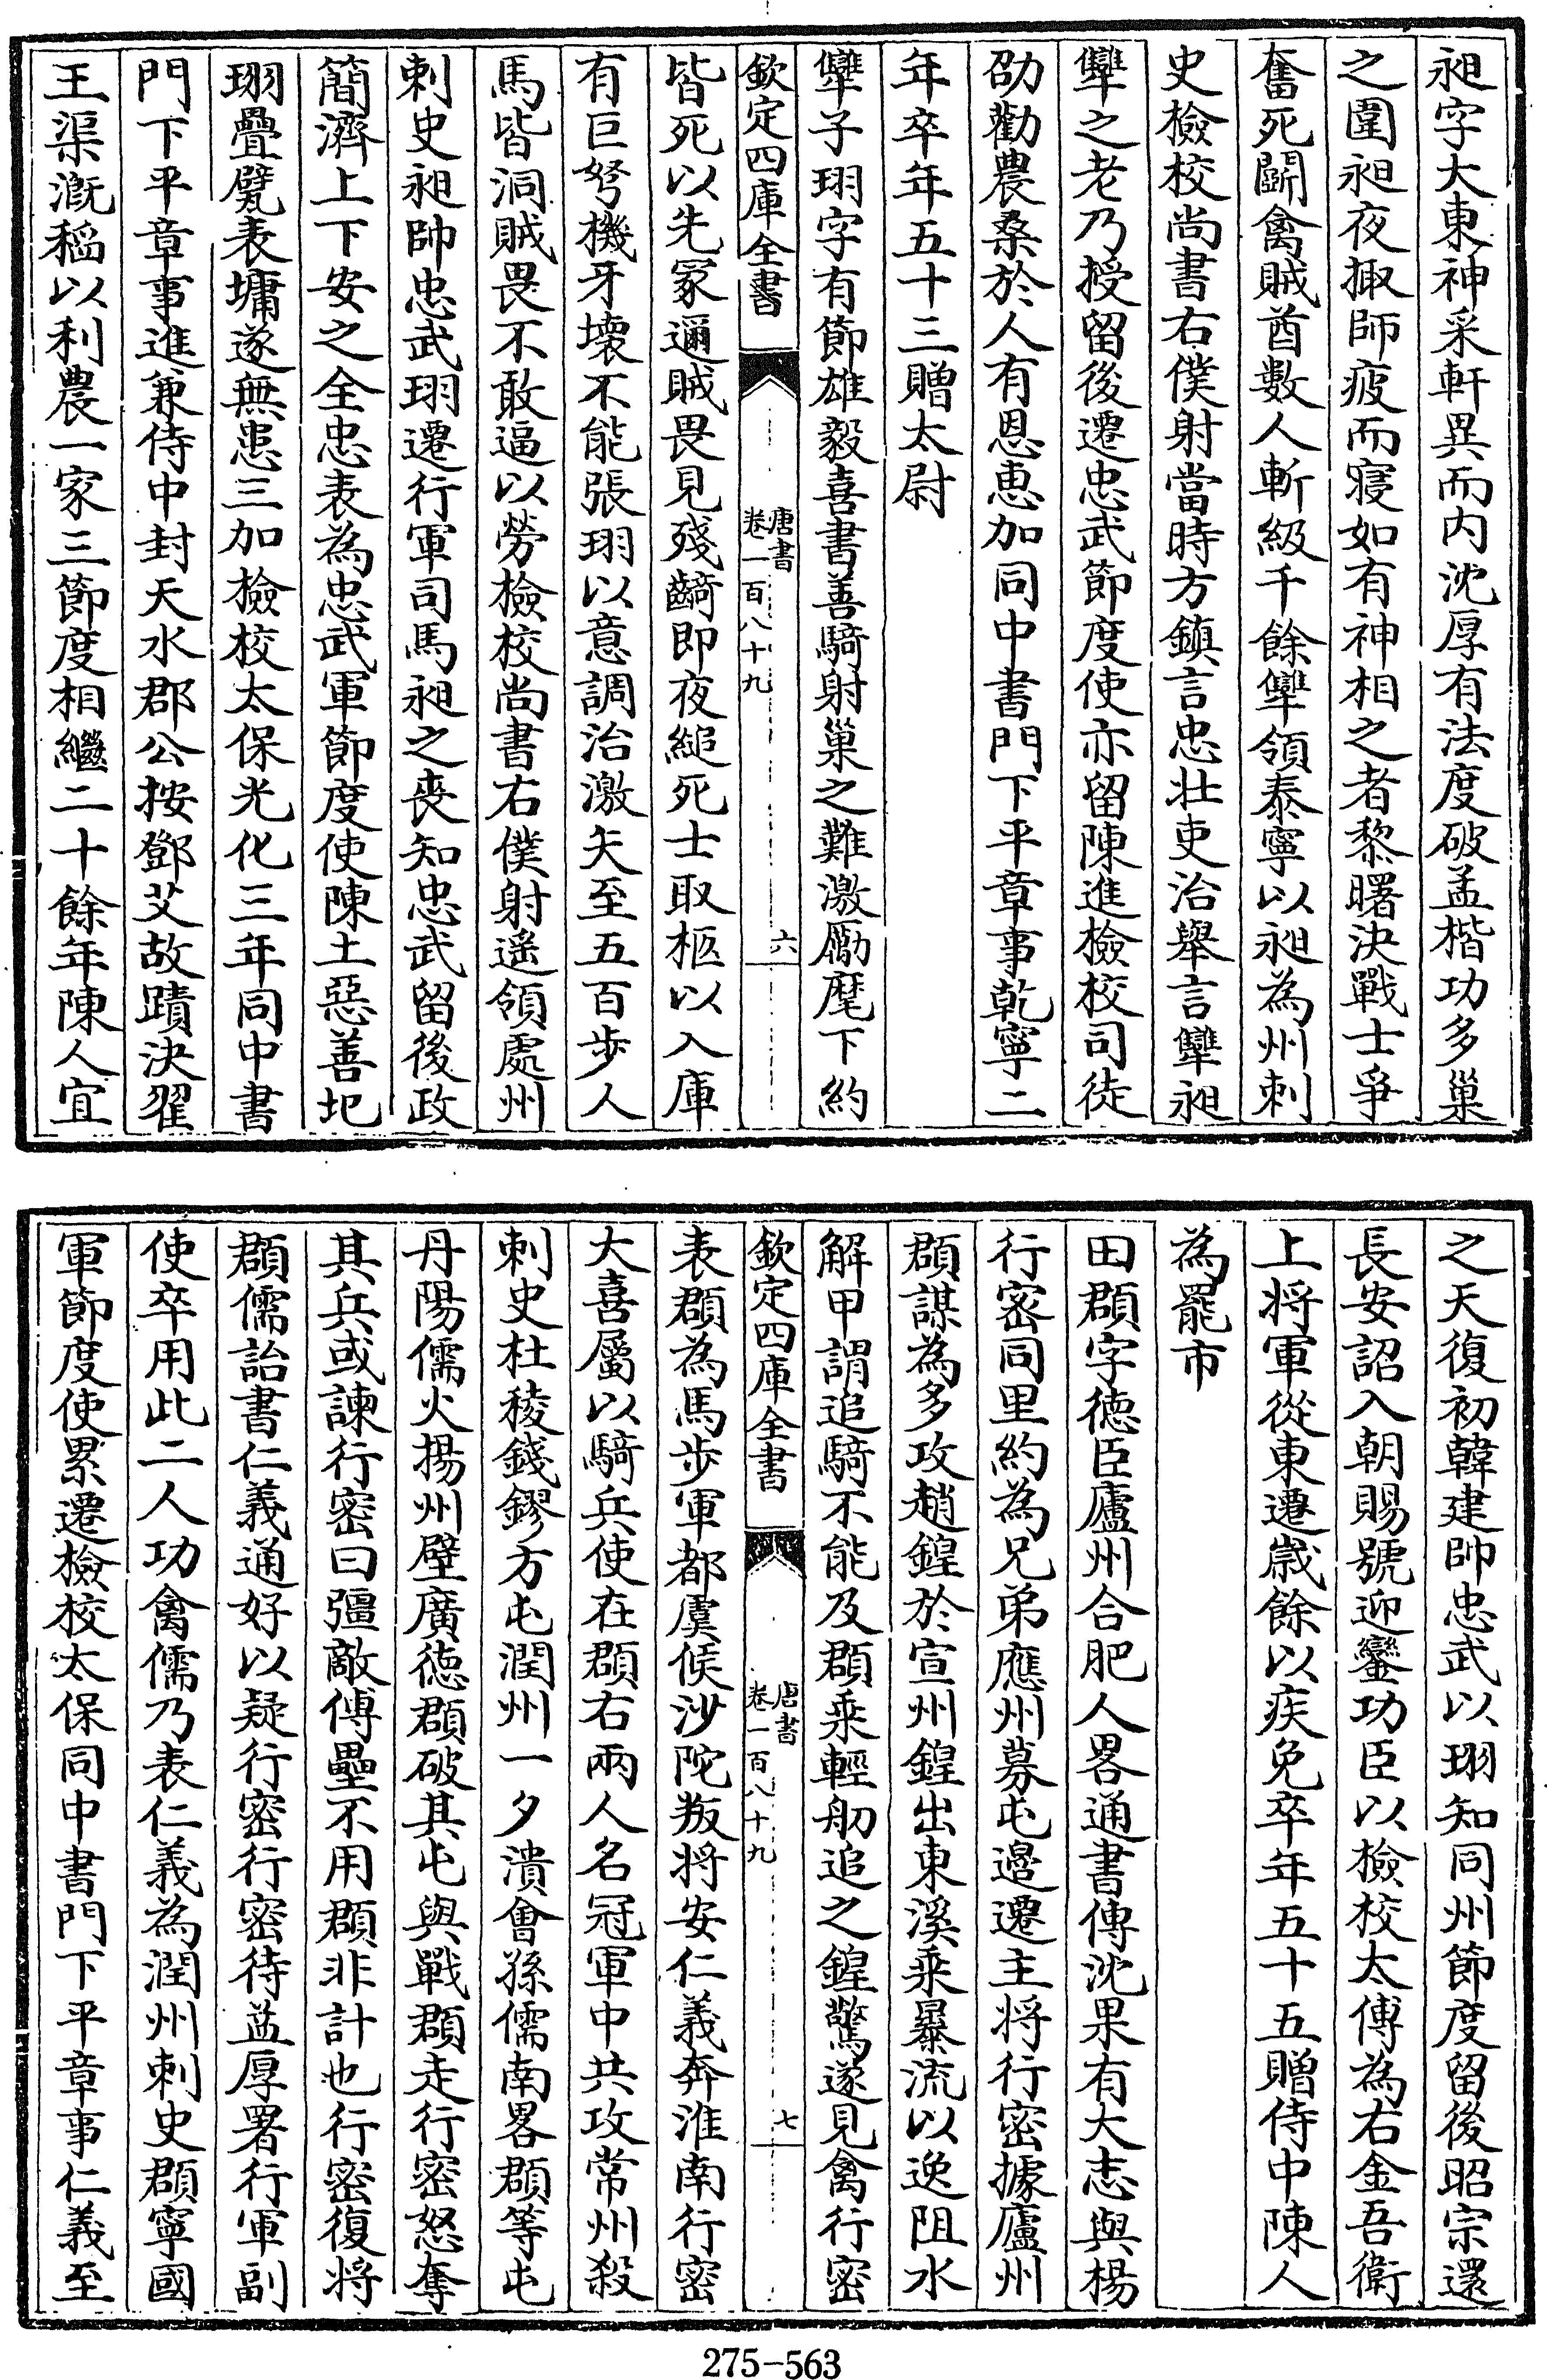 昶字大東神采軒異而内沈厚有法度破孟楷功多巢
之圍昶夜掫師疲而寢如有神相之者黎曙決戰士爭
奮死鬬禽賊酋數人斬級千餘犨領泰寧以昶為州刺
史檢校尚書右僕射當時方鎮言忠壯吏治舉言犨昶
犨之老乃授留後遷忠武節度使亦留陳進檢校司徒
劭勸農桑於人有恩惠加同中書門下平章事乾寧二
年卒年五十三贈太尉
犨子珝字有節雄毅喜書善騎射巢之難激勵麾下約
欽定四庫全書
唐書
卷一百八十九
六
皆死以先冢邇賊畏見殘齮即夜縋死士取柩以入庫
有巨弩機牙壞不能張珝以意調治激矢至五百步人
馬皆洞賊畏不敢逼以勞檢校尚書右僕射遥領處州
刺史昶帥忠武珝遷行軍司馬昶之喪知忠武留後政
簡濟上下安之全忠表為忠武軍節度使陳土惡善圮
珝疊甓表墉遂無患三加檢校太保光化三年同中書
門下平章事進兼侍中封天水郡公按鄧艾故蹟決翟
王渠溉稻以利農一家三節度相繼二十餘年陳人宜
之天復初韓建帥忠武以珝知同州節度留後昭宗還
長安詔入朝賜號迎鑾功臣以檢校太傅為右金吾衛
上將軍從東遷嵗餘以疾免卒年五十五贈侍中陳人
為罷市
田頵字徳臣廬州合肥人畧通書傳沈果有大志與楊
行密同里約為兄弟應州募屯邉遷主将行密據廬州
頵謀為多攻趙鍠於宣州鍠出東溪乘暴流以逸阻水
解甲謂追騎不能及頵乘輕舠追之鍠驚遂見禽行密
欽定四庫全書
唐書
卷一百八十九
七
表頵為馬步軍都虞候沙陀叛將安仁義奔淮南行密
大喜屬以騎兵使在頵右兩人名冠軍中共攻常州殺
刺史杜稜錢鏐方屯潤州一夕潰會孫儒南畧頵等屯
丹陽儒火揚州壁廣徳頵破其屯與戰頵走行密怒奪
其兵或諫行密曰彊敵傅壘不用頵非計也行密復将
頵儒詒書仁義通好以疑行密行密待益厚署行軍副
使卒用此二人功禽儒乃表仁義為潤州刺史頵寧國
軍節度使累遷檢校太保同中書門下平章事仁義至
275-563